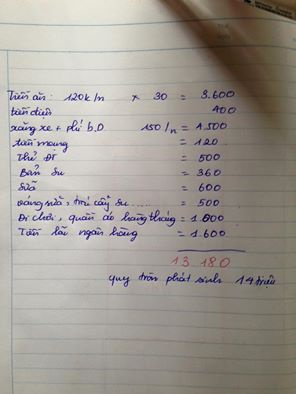 Tiền ăn: 120k/n × 30 = 3.600
tiền điện 400
xăng xe + phí b.D 150/n = 4.500
tiền mạng = 120
Thẻ Đt = 500
Bỉm Su = 360
Sữa = 600
váng sữa, trái cây su...... = 500
Đi chơi, quần áo hàng tháng = 1.000
Tiền lãi ngân hàng = 1.600
13.180
quy tròn phát sinh 14 triệu